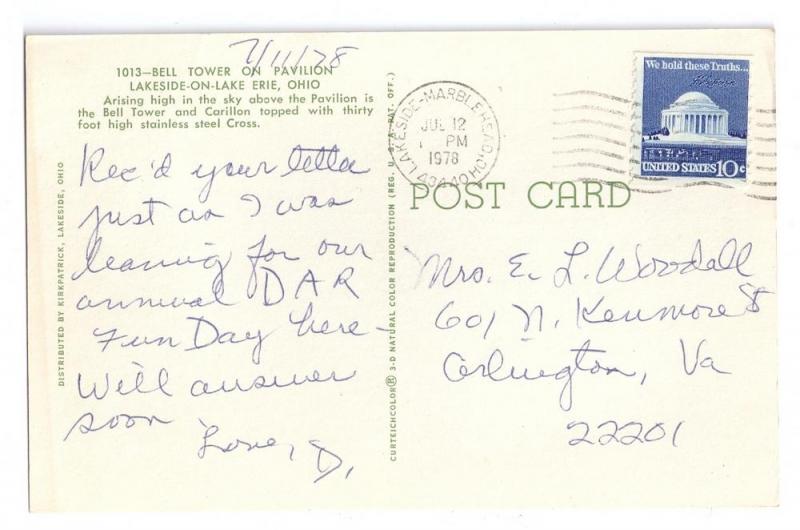 7/11/78
1013—BELL TOWER ON PAVILION
LAKESIDE-ON-LAKE ERIE, OHIO
Arising high in the sky above the Pavilion is
the Bell Tower and Carillon topped with thirty
foot high stainless steel Cross.
Rec'd your letter
just as I was
leaving for our
annual DAR
Fun Day here –
Will answer
soon
Love, D,
DISTRIBUTED BY KIRKPATRICK, LAKESIDE, OHIO
CURTEICHCOLOR® 3-D NATURAL COLOR REPRODUCTION (REG. U.S.A. PAT. OFF.)
LAKESIDE-MARBLEHEAD, OH
JUL 12
PM
1978
43440
We hold these Truths...
UNITED STATES 10c
POST CARD
Mrs. E. L. Woodall
601 N. Kenmore St
Arlington, Va
22201